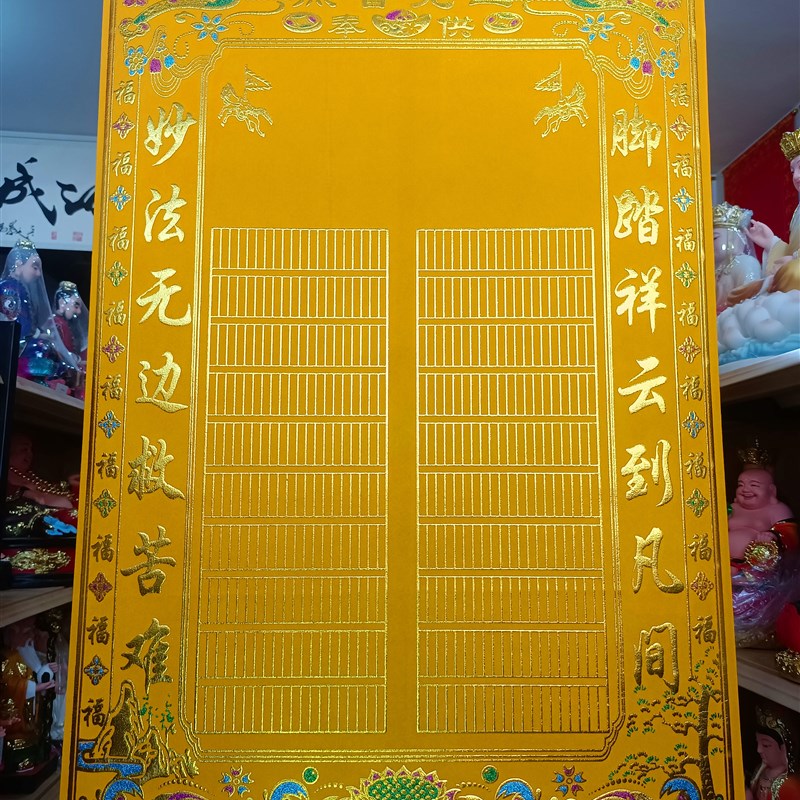 供奉
脚踏祥云到凡间
妙法无边救苦难
福福福福福福福福
福福福福福福福福福